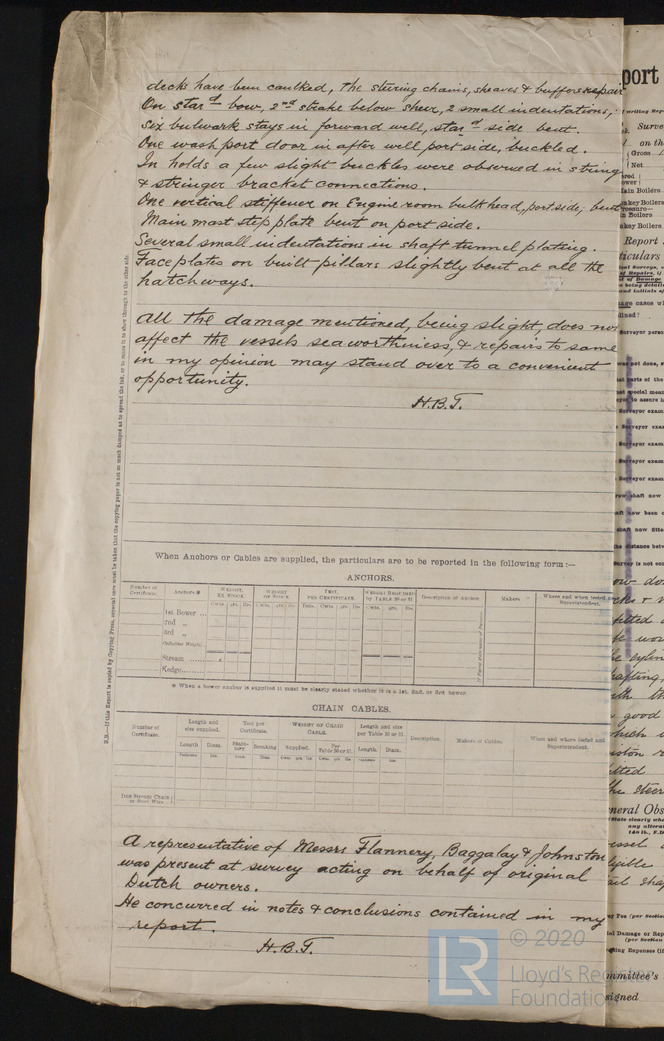 decks have been caulked, the steering chains, sheaves & buffers repair
On star^d bow, 2nd strake below sheer, 2 small indentations,
six bulwark stays in forward well, star^d side bent.
One wash port door in after well port side, buckled.
In holds a few slight buckles were observed in string
& stringer bracket connections.
One vertical stiffener on Engine room bulkhead, port side, bent
Main mast step plate bent on port side.
Several small indentations in shaft tunnel plating.
Face plates on built pillars slightly bent at all the
hatchways.
All the damage mentioned, being slight, does not
affect the vessels seaworthiness, & repairs to same
in my opinion may stand over to a convenient
opportunity.
H.B.T.
When Anchors or Cables are supplied, the particulars are to be reported in the following form :—
ANCHORS.
Number of Certificate. Anchors * WEIGHT, EX STOCK. WEIGHT OF STOCK. TEST PER CERTIFICATE. Description of Anchor. Makers Where and when tested Superintendent.
1st Bower ...
2nd „
3rd „
Collective Weight
Stream
Kedge
* When a bower anchor is supplied it must be clearly stated whether it is a 1st, 2nd, or 3rd bower.
CHAIN CABLES.
Number of Certificate. Length and size supplied. Test per Certificate. WEIGHT OF CHAIN CABLE. Length and size per Table 30 or 31. Description. Makers of Cables. When and where tested and Superintendent.
Length Diam. Breaking Supplied. Per Table 30 or 31. Length. Diam.
Iron Stream Chain or Steel Wire
A representative of Messrs Flannery, Baggalay & Johnston
was present at survey acting on behalf of original
Dutch owners.
He concurred in notes & conclusions contained in my
report.
H.B.T.
N.B.—If this Report is copied by Copying Press, especial care must be taken that the copying paper is not so much damped as to spread the ink, or to cause it to show through on the other side.
port
Surve
on th
Gross
Net
Report
ticulars
© 2020
LR
Lloyd's Register
Foundation
mmittee's
signed